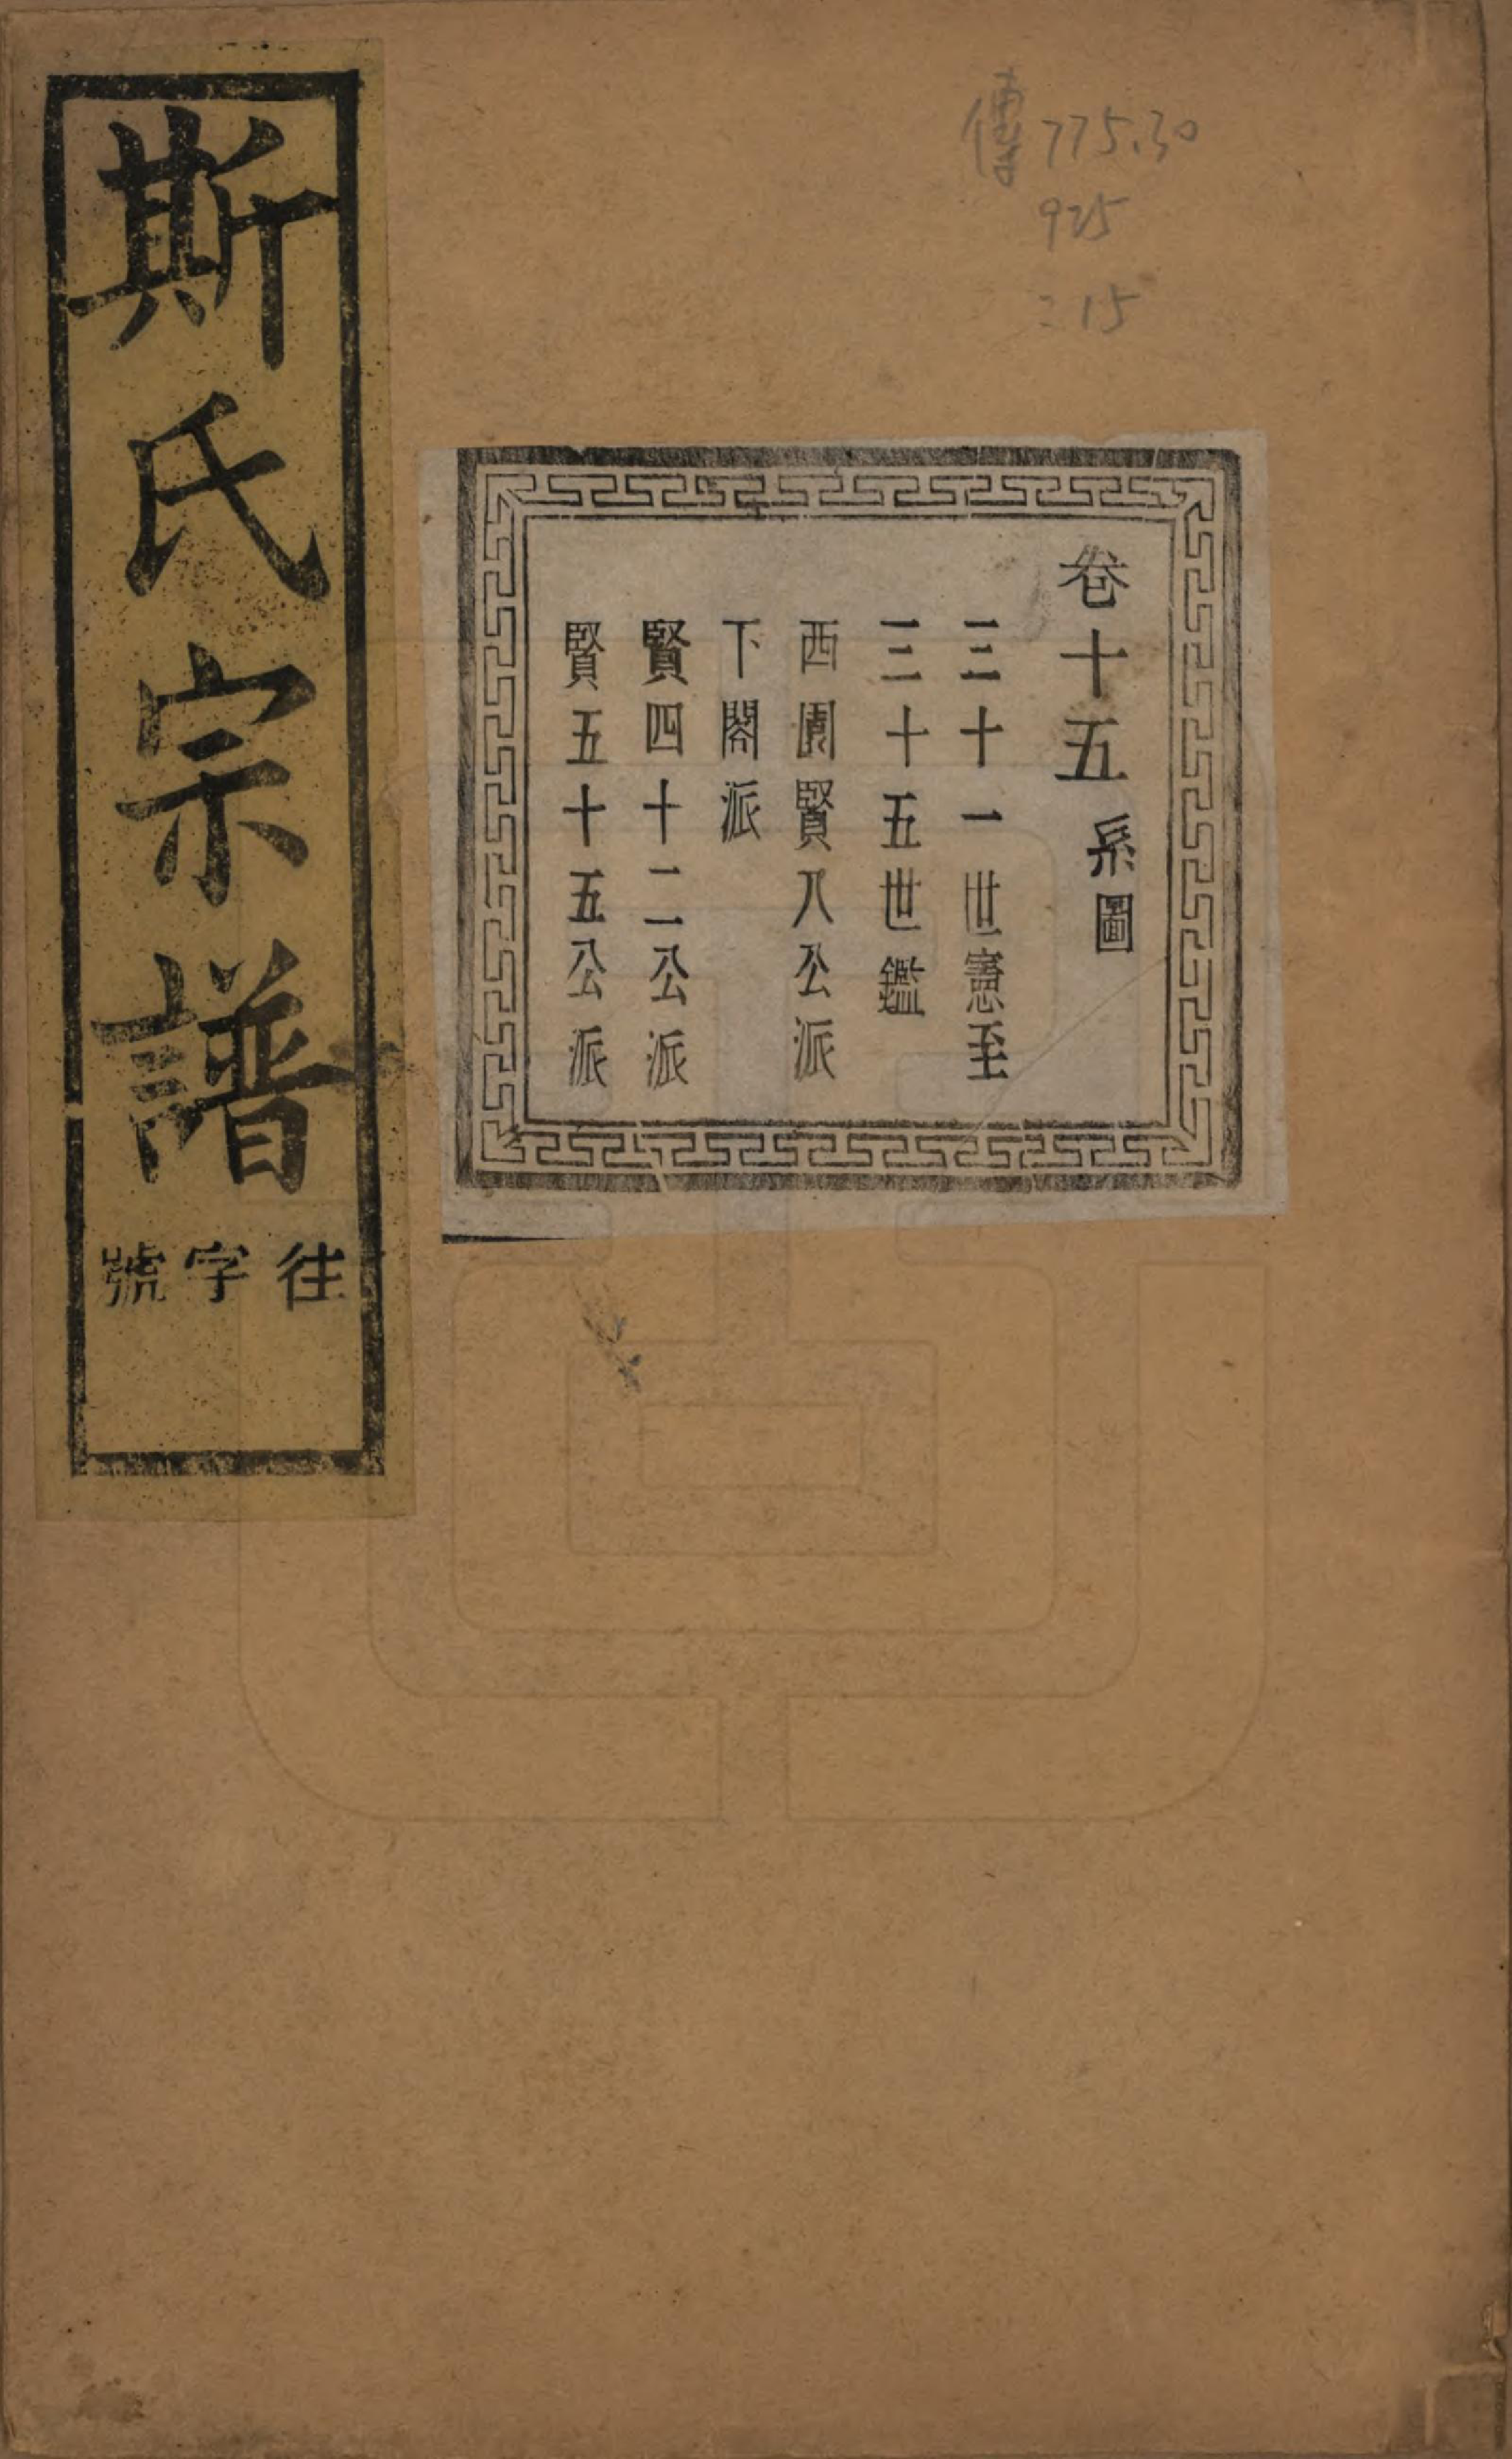 傳 775.30
925
:15
卷十五 系圖
三十一世憲至
三十五世鑑
西園賢八公派
下閣派
賢四十二公派
賢五十五公派
斯氏宗譜
往字號